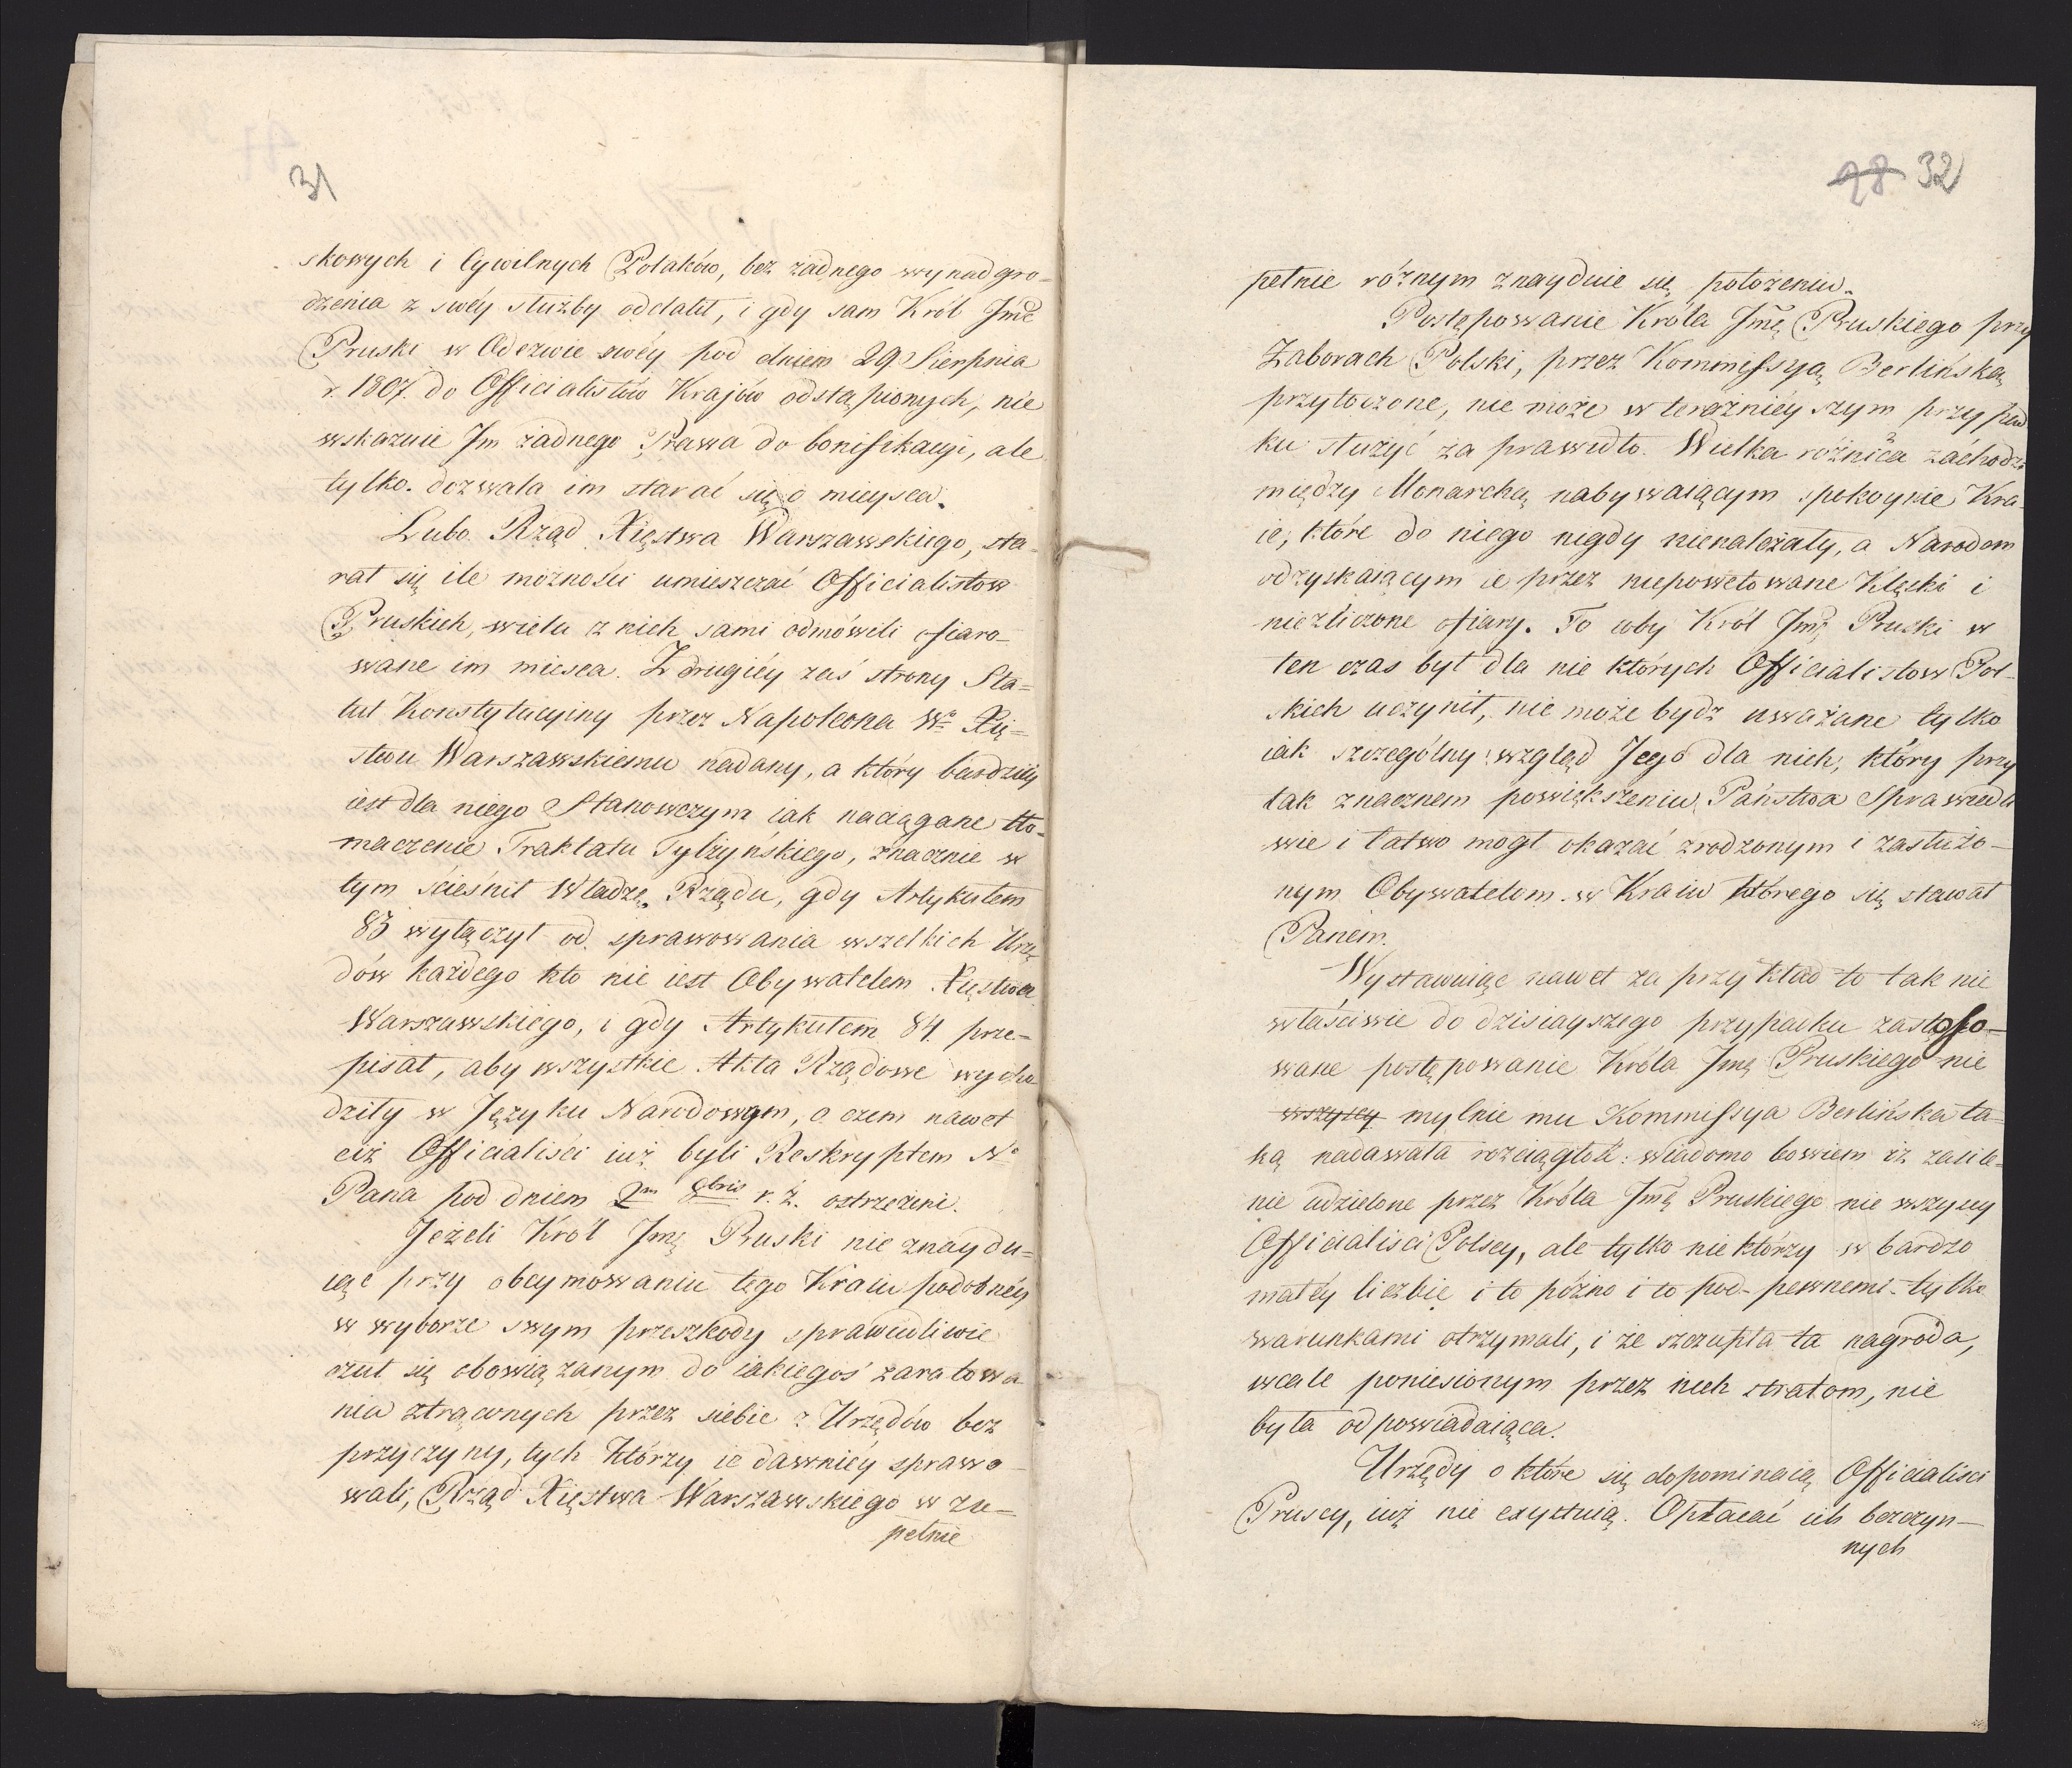 31
skowych i Cywilnych Polaków, bez żadnego wynadgro-
dzenia z swéy służby oddalił, i gdy sam Król Jmć
Pruski w Odezwie swéy pod dniem 29. Sierpnia
r. 1807. do Officialistów Kraiów odstąpionych, nie
wskazuie Im żadnego Prawa do bonifikacyi, ale
tylko dozwala im starać się o mieysca.
Lubo Rząd Xięstwa Warszawskiego, sta-
rał się ile możności umieszczać Officialistow
Pruskich, wielu z nich sami odmówili ofiaro-
wane im miesca. Z drugiéy zaś strony Sta=
tut Konstytucyiny przez Napoleona Wo Xię=
stwu Warszawskiemu nadany, a który bardziéy
iest dla niego Stanowczym iak naciągane tło-
maczenie Traktatu Tylżyńskiego, znacznie w
tym ścieśnił Władzę Rządu, gdy Artykułem
83 wyłączył od sprawowania wszelkich Urzę
dów każdego kto nie iest Obywatelem Xięstwa
Warszawskiego, i gdy Artykułem 84 prze-
pisał, aby wszystkie Akta Rządowe wycho
dziły w Języku Narodowym, o czem nawet
ciż Officialiści iuż byli Reskryptem No
Pana pod dniem 2m 8bris r. z. ostrzeżeni.
Jeżeli Król Jmć Pruski nie znaydu=
iąc przy obeymowaniu tego Kraiu podobnéy
w wyborze swym przeszkody sprawiedliwie
czuł się obowiązanym do iakiegoś zaratowa
nia strąconych przez siebie z Urzędów bez
przyczyny, tych którzy ie dawniéy sprawo-
wali, Rząd Xięstwa Warszawskiego w zu-
pełnie
98 32
pełnie różnym znayduie się położeniu.
Postępowanie Króla Jmć Pruskiego przy
Zaborach Polski, przez Kommissyą Berlińską
przytoczone, nie może w teraźnieyszym przypad
ku służyć za prawidło. Wielka różnica zachodzi
między Monarchą nabywaiącym spokoynie Kra-
ie, które do niego nigdy nienależały, a Narodem
odzyskaiącym ie przez niepowetowane Klęski i
niezliczone ofiary. To coby Król Jmć Pruski w
ten czas był dla nie których Officialistow Pol-
skich uczynił, nie może bydz uważane tylko
iak szczególny wzgląd Jego dla nich, który przy
tak znacznem powiększeniu Państwa Sprawiedli
wie i łatwo mogł okazać zrodzonym i zasłużo-
nym Obywatelom w Kraiu którego się stawał
Panem.
Wystawuiąc nawet za przykład to tak nie
właściwie do dzisiayszego przypadku zastoso-
wane postępowanie Króla Jmć Pruskiego nie
wszyscy mylnie mu Kommissya Berlińska ta-
ką nadawała rozciągłość: wiadomo bowiem iż zasile-
nie udzielone przez Króla Jmć Pruskiego nie wszyscy
Officialiści Polscy, ale tylko niektórzy w bardzo
małéy liczbie i to późno i to pod pewnemi tylko
warunkami otrzymali, i że szczupła ta nagroda,
wcale poniesionym przez nich stratom, nie
była odpowiadaiąca.
Urzędy o które się dopominaią Officialiści
Pruscy, iuż nie exystuią. Opłacać ich bezczyn-
nych